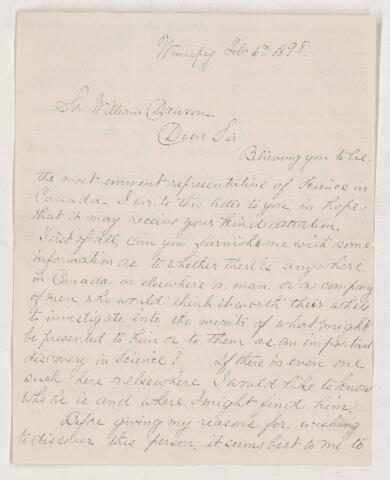 Winnipeg Feb 6th 1898.
Sir William Dawson.
Dear Sir
Believing you to be
the most eminent representative of Science in
Canada - I write this letter to you in hope
that it may receive your kind attention.
First of all, can you furnish me with some
information as to whether there is anywhere
in Canada or elsewhere a man or a company
of men who would think it worth their while
to investigate into the merits of what might
be presented to him or to them as an important
discovery in Science? If there is even one
such here or elsewhere I would like to know
who he is and where I might find him.
Before giving my reasons for wishing
to discover this person, it seems best to me to